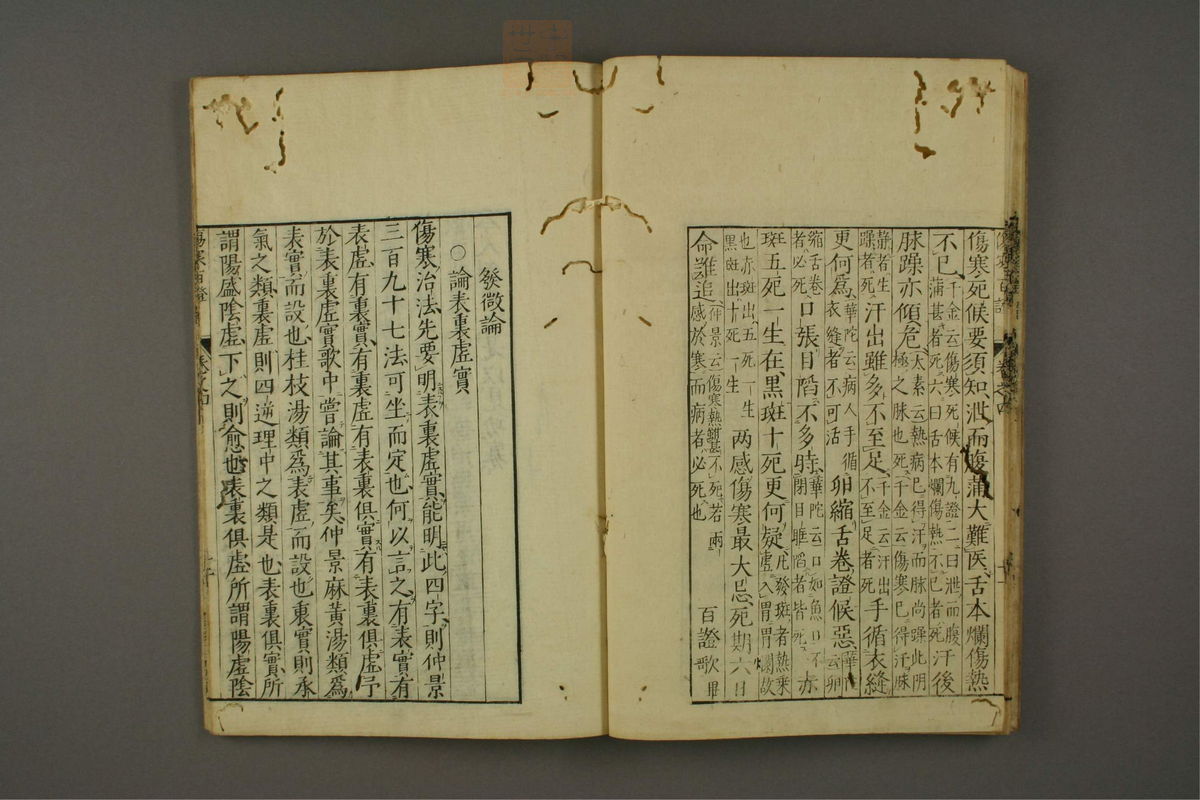 傷寒死候要須知泄而腹蒲大難医舌本爛傷熱
不已千金云傷寒死候有九證二曰泄而腹
蒲甚者死六曰舌本爛傷熱不已者死汗後
脉躁亦傾危太素云熱病已得汗而脉尚躁此阴
極之脉也死千金云傷寒已得汗脉
静者生
躁者死汗出雖多不至足千金云汗出
不至足者死手循衣縫
更何爲華陀云病人手循
衣縫者不可活卵縮舌卷證候惡華陀云卵
縮舌卷
者必死口張目䧟不多時華陀云口如魚口不
閉目䧟者皆死赤
斑五死一生在黒斑十死更何疑凡發斑者熱乗
虚入胃胃爛故
也赤斑出五死一生
黒斑出十死一生两感傷寒最大忌死期六日
命難追仲景云傷寒熱雖甚不死若兩
感於寒而病者必死也百證歌畢
發微論
○論表裏虚實
傷寒治法先要明表裏虚實能明此四字則仲景
三百九十七法可坐而定也何以言之有表實有
表虚有裏實有裏虚有表裏俱實有表裏俱虚予
於表裏虚實歌中嘗論其事矣仲景麻黄湯類爲
表實而設也桂枝湯類爲表虚而設也裏實則承
氣之類裏虚則四逆理中之類是也表裏俱實所
謂陽盛陰虚下之則愈也表裏俱虚所謂陽虚陰